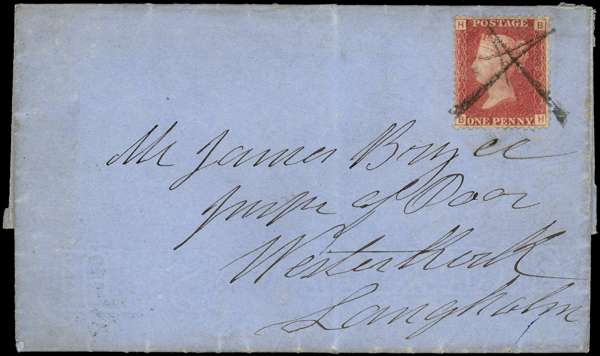 H POSTAGE B
B ONE PENNY H
Mr James Bryce
of Door
Westerkirk
Langholm